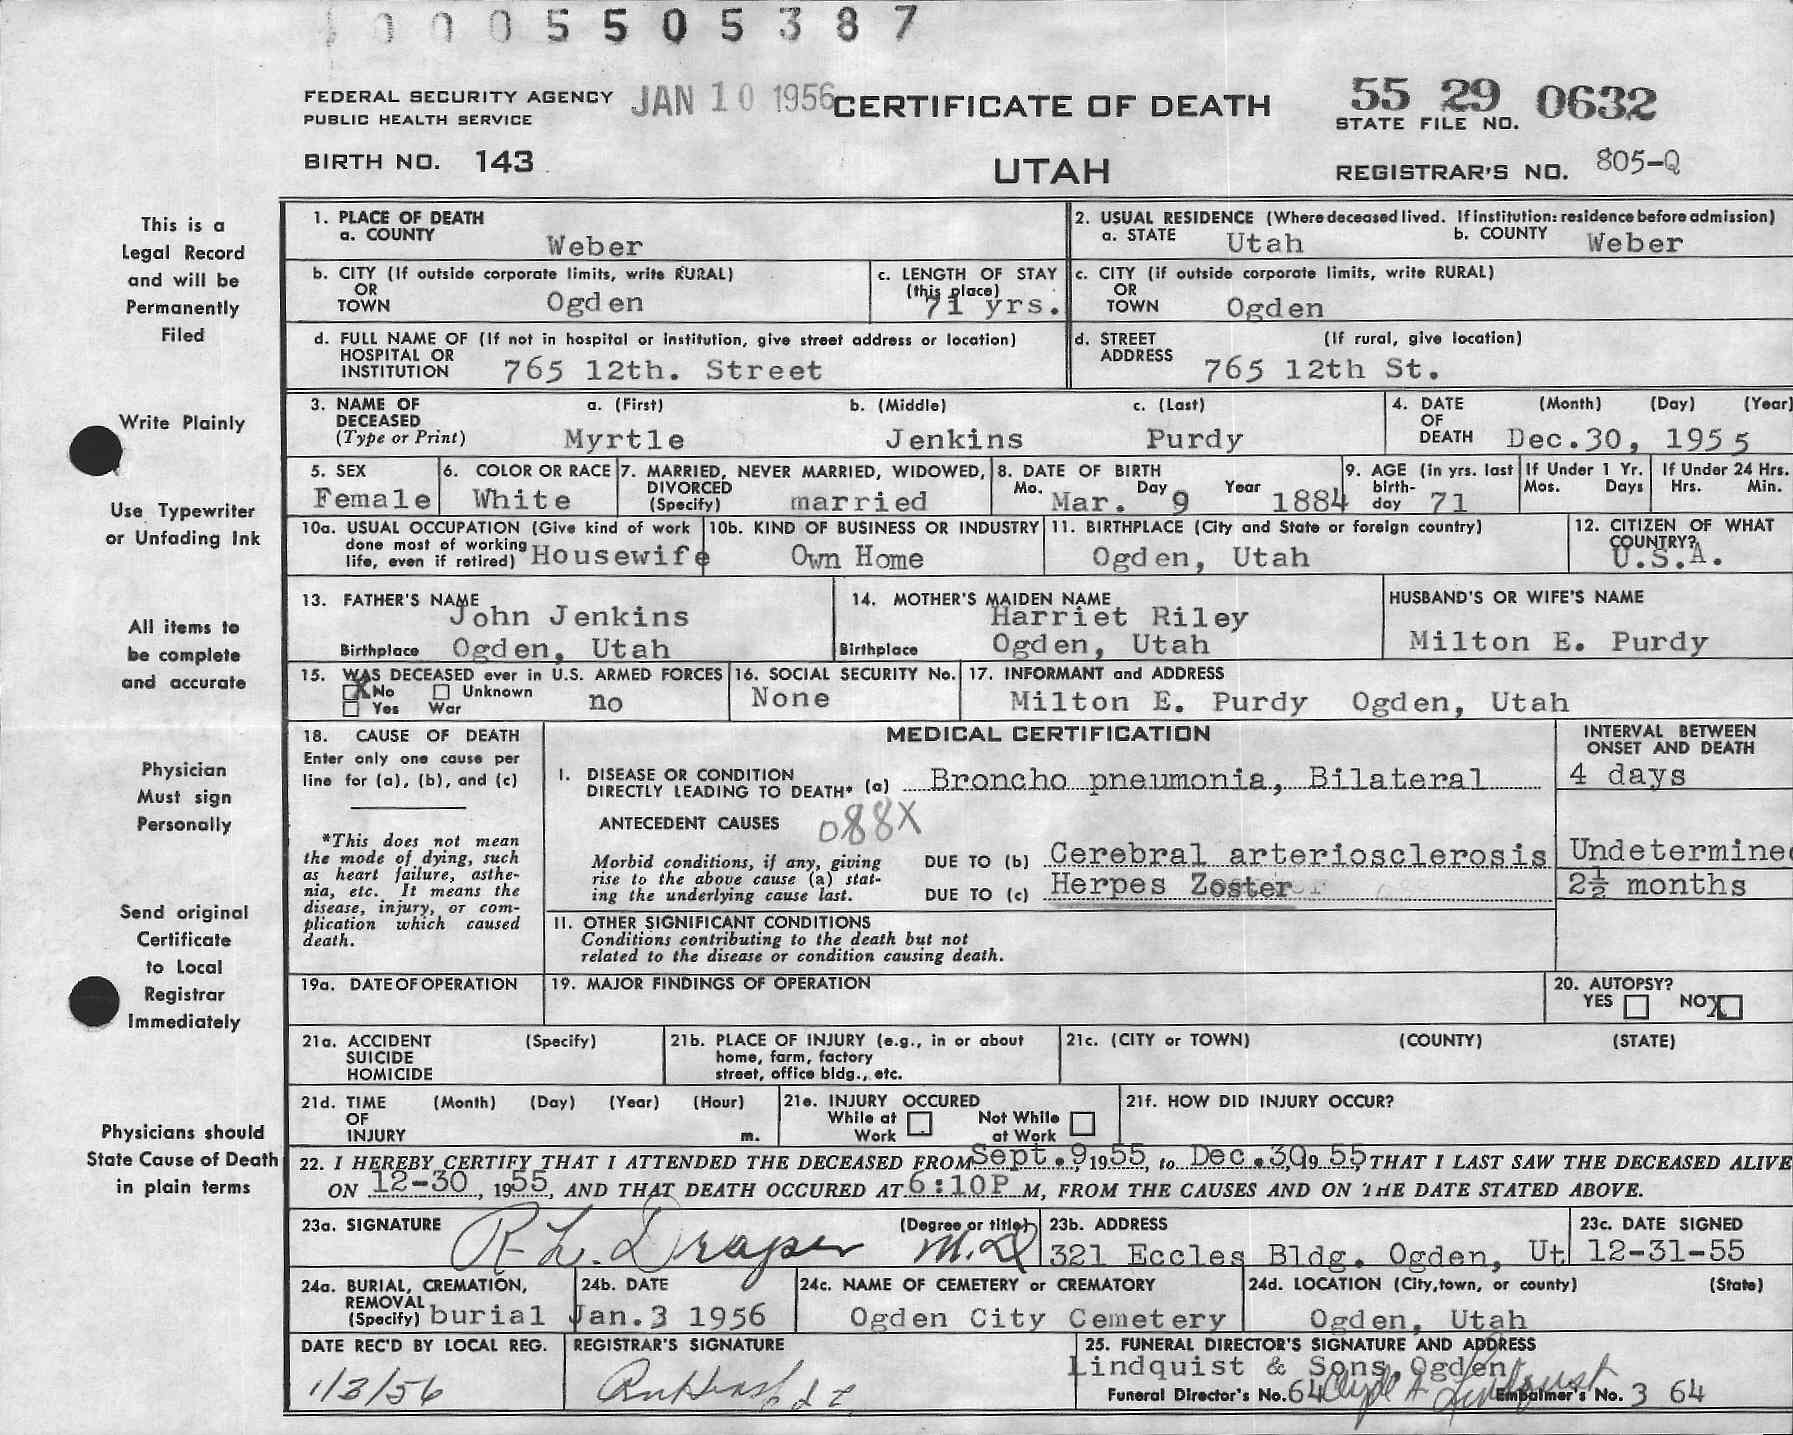 0005505387
FEDERAL SECURITY AGENCY
PUBLIC HEALTH SERVICE
JAN 10 1956
CERTIFICATE OF DEATH
55 29 0632
STATE FILE NO.
BIRTH NO. 143
UTAH
REGISTRAR'S NO. 805-Q
This is a
Legal Record
and will be
Permanently
Filed
Write Plainly
Use Typewriter
or Unfading Ink
All items to
be complete
and accurate
Physician
Must sign
Personally
Send original
Certificate
to Local
Registrar
Immediately
Physicians should
State Cause of Death
in plain terms
1. PLACE OF DEATH
a. COUNTY Weber
2. USUAL RESIDENCE (Where deceased lived. If institution: residence before admission)
a. STATE Utah b. COUNTY Weber
b. CITY (If outside corporate limits, write RURAL)
OR
TOWN Ogden
c. LENGTH OF STAY
(this place)
71 yrs.
c. CITY (if outside corporate limits, write RURAL)
OR
TOWN Ogden
d. FULL NAME OF (If not in hospital or institution, give street address or location)
HOSPITAL OR
INSTITUTION 765 12th. Street
d. STREET (If rural, give location)
ADDRESS 765 12th St.
3. NAME OF a. (First) b. (Middle) c. (Last)
DECEASED
(Type or Print) Myrtle Jenkins Purdy
4. DATE (Month) (Day) (Year)
OF
DEATH Dec.30, 1955
5. SEX
Female
6. COLOR OR RACE
White
7. MARRIED, NEVER MARRIED, WIDOWED,
DIVORCED
(Specify) married
8. DATE OF BIRTH
Mo. Day Year
Mar. 9 1884
9. AGE (in yrs. last
birth-
day 71
If Under 1 Yr.
Mos. Days
If Under 24 Hrs.
Hrs. Min.
10a. USUAL OCCUPATION (Give kind of work
done most of working
life, even if retired) Housewife
10b. KIND OF BUSINESS OR INDUSTRY
Own Home
11. BIRTHPLACE (City and State or foreign country)
Ogden, Utah
12. CITIZEN OF WHAT
COUNTRY?
U.S.A.
13. FATHER'S NAME
John Jenkins
Birthplace Ogden, Utah
14. MOTHER'S MAIDEN NAME
Harriet Riley
Birthplace Ogden, Utah
HUSBAND'S OR WIFE'S NAME
Milton E. Purdy
15. WAS DECEASED ever in U.S. ARMED FORCES
X No Unknown
Yes War no
16. SOCIAL SECURITY No.
None
17. INFORMANT and ADDRESS
Milton E. Purdy Ogden, Utah
18. CAUSE OF DEATH
Enter only one cause per
line for (a), (b), and (c)
*This does not mean
the mode of dying, such
as heart failure, asthe-
nia, etc. It means the
disease, injury, or com-
plication which caused
death.
MEDICAL CERTIFICATION
INTERVAL BETWEEN
ONSET AND DEATH
I. DISEASE OR CONDITION
DIRECTLY LEADING TO DEATH* (a) Broncho pneumonia, Bilateral 4 days
ANTECEDENT CAUSES 088X
Morbid conditions, if any, giving
rise to the above cause (a) stat-
ing the underlying cause last.
DUE TO (b) Cerebral arteriosclerosis Undetermined
DUE TO (c) Herpes Zoster 2½ months
II. OTHER SIGNIFICANT CONDITIONS
Conditions contributing to the death but not
related to the disease or condition causing death.
19a. DATE OF OPERATION
19. MAJOR FINDINGS OF OPERATION
20. AUTOPSY?
YES NO X
21a. ACCIDENT (Specify)
SUICIDE
HOMICIDE
21b. PLACE OF INJURY (e.g., in or about
home, farm, factory
street, office bldg., etc.
21c. (CITY or TOWN) (COUNTY) (STATE)
21d. TIME (Month) (Day) (Year) (Hour)
OF
INJURY m.
21e. INJURY OCCURED
While at Not While
Work at Work
21f. HOW DID INJURY OCCUR?
22. I HEREBY CERTIFY THAT I ATTENDED THE DECEASED FROM Sept.9, 1955, to Dec.30, 1955, THAT I LAST SAW THE DECEASED ALIVE
ON 12-30, 1955, AND THAT DEATH OCCURED AT 6:10P M, FROM THE CAUSES AND ON THE DATE STATED ABOVE.
23a. SIGNATURE (Degree or title)
R L. Draper M.D.
23b. ADDRESS
321 Eccles Bldg. Ogden, Ut
23c. DATE SIGNED
12-31-55
24a. BURIAL, CREMATION,
REMOVAL
(Specify) burial
24b. DATE
Jan.3 1956
24c. NAME OF CEMETERY or CREMATORY
Ogden City Cemetery
24d. LOCATION (City, town, or county) (State)
Ogden, Utah
DATE REC'D BY LOCAL REG.
1/3/56
REGISTRAR'S SIGNATURE
25. FUNERAL DIRECTOR'S SIGNATURE AND ADDRESS
Lindquist & Sons, Ogden
Funeral Director's No. 64 Clyde A Lindquist Embalmer's No. 3 64